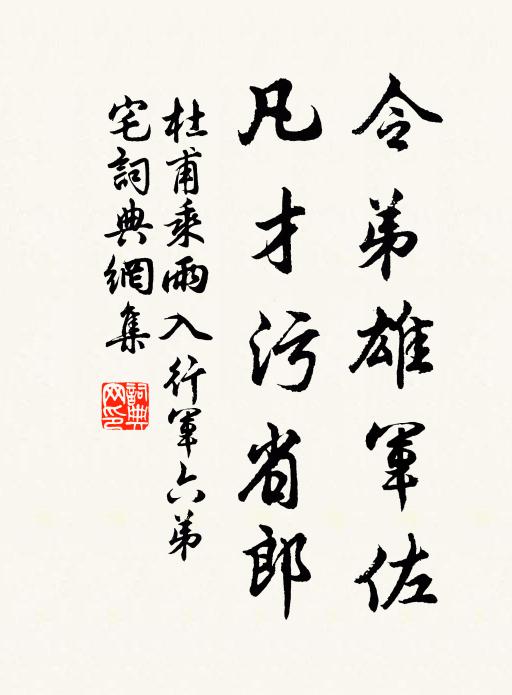 令弟雄軍佐
凡才污省郎
杜甫乘雨入行軍六弟
宅詞典網集
詞典網印